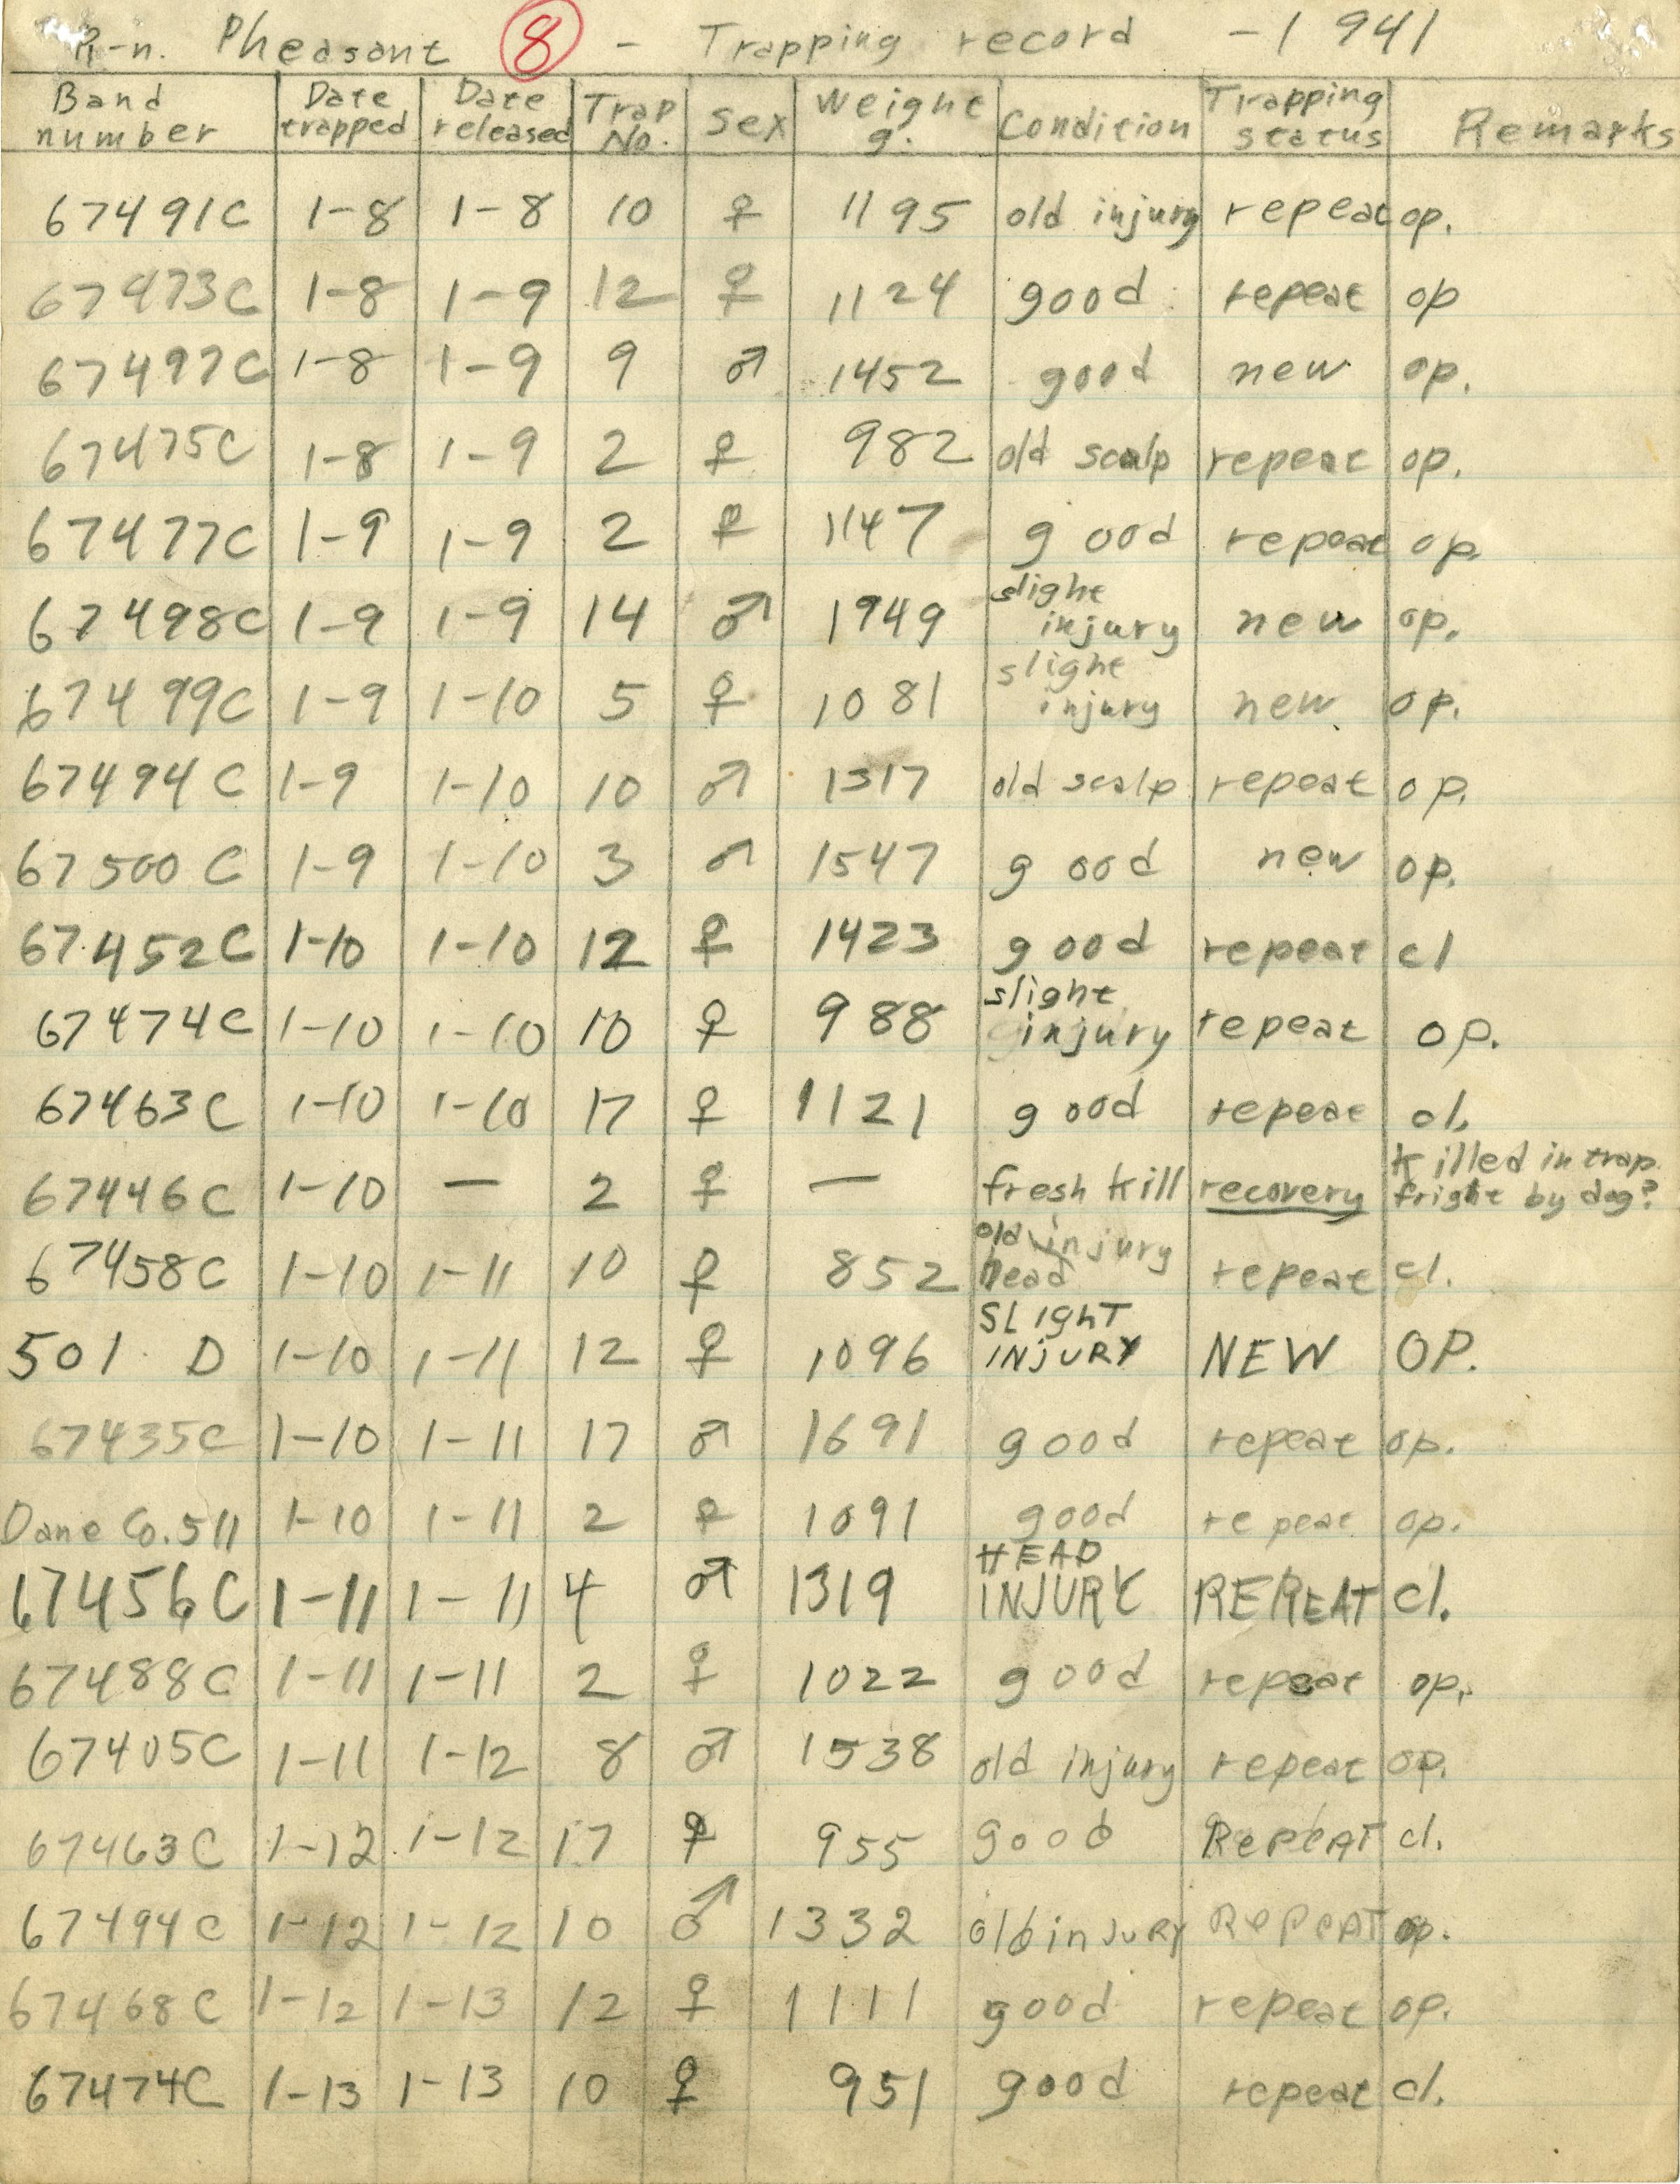 R-n. Pheasant 8 - Trapping record - 1941
Band number Date trapped Date released Trap No. Sex Weight g. Condition Trapping status Remarks
67491C 1-8 1-8 10 ♀ 1195 old injury repeat op.
67473C 1-8 1-9 12 ♀ 1124 good repeat op
67497C 1-8 1-9 9 ♂ 1452 good new op.
67475C 1-8 1-9 2 ♀ 982 old scalp repeat op.
67477C 1-9 1-9 2 ♀ 1147 good repeat op.
67498C 1-9 1-9 14 ♂ 1949 slight injury new op.
67499C 1-9 1-10 5 ♀ 1081 slight injury new op.
67494C 1-9 1-10 10 ♂ 1317 old scalp repeat op.
67500C 1-9 1-10 3 ♂ 1547 good new op.
67452C 1-10 1-10 12 ♀ 1423 good repeat cl
67474C 1-10 1-10 10 ♀ 988 slight injury repeat op.
67463C 1-10 1-10 17 ♀ 1121 good repeat cl.
67446C 1-10 — 2 ♀ — fresh kill recovery Killed in trap. fright by dog?
67458C 1-10 1-11 10 ♀ 852 old injury head repeat cl.
501 D 1-10 1-11 12 ♀ 1096 SLIGHT INJURY NEW OP.
67435C 1-10 1-11 17 ♂ 1691 good repeat op.
Dane Co. 511 1-10 1-11 2 ♀ 1091 good repeat op.
67456C 1-11 1-11 4 ♂ 1319 HEAD INJURY REPEAT cl.
67488C 1-11 1-11 2 ♀ 1022 good repeat op.
67405C 1-11 1-12 8 ♂ 1538 old injury repeat op.
67463C 1-12 1-12 17 ♀ 955 good RePeAT cl.
67494C 1-12 1-12 10 ♂ 1332 old inJURY RePeAT op.
67468C 1-12 1-13 12 ♀ 1111 good repeat op.
67474C 1-13 1-13 10 ♀ 951 good repeat cl.